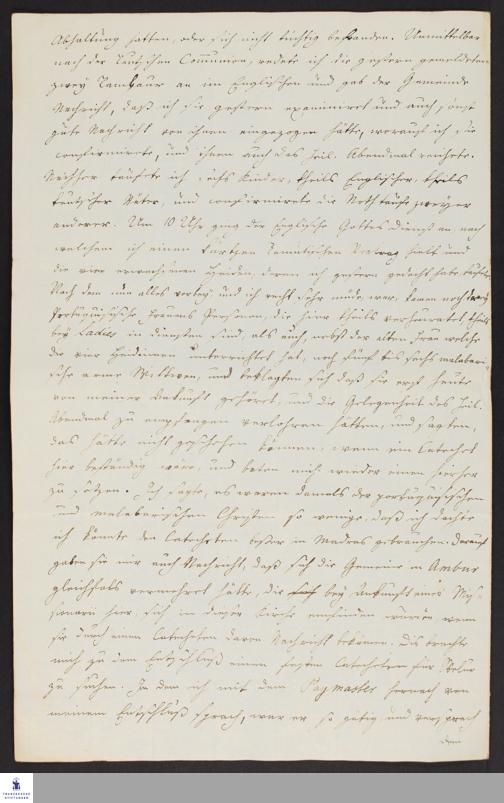 Abhaltung hatten, oder sich nicht tüchtig befanden. Unmittelbar
nach der Teutschen Communion, redete ich die gestern gemeldeten
zwey Tambaur an im Englischen und gab der Gemeinde
Nachricht, daß ich sie gestern examiniret und auch sonst
gute Nachricht von ihnen eingezogen hätte, worauf ich sie
confirmirete, und ihnen auch das heil. Abendmal reichete.
Nachher taufete ich sechs Kinder, theils Englischer, theils
teutscher Väter, und confirmirete die Nothtaufe zweyer
anderer. Um 10 Uhr ging der Englische Gottesdienst an, nach
welchem ich einen kurtzen Tamulischen Vortrag hielt und
die vier erwachsenen Heiden, deren ich gestern gedacht habe taufte
Nach dem nun alles vorbey und ich recht sehr müde war, kamen noch
Portugisische Frauens Personen, die hier theils verheuratet, theils
bey Ladies in diensten sind, als auch, nebst der alten Frau welche
die vier Heidinnen unterrichtet hat, noch fünf bis sechs malabari-
sche arme Wittwen, und beklagten sich daß sie erst heute
von meiner Ankunft gehöret, und die Gelegenheit das heil.
Abendmal zu empfangen verlohren hätten, und sagten,
das hätte nicht geschehen können, wenn ein Catechet
hier beständig wäre, und baten mich wieder einen hierher
zu setzen. Ich sagte, es waren damals der portugisischen
und malabarischen Christen so wenige, daß ich dachte
ich könnte den Catecheten besser in Madras gebrauchen. Darauf
gaben sie mir auch Nachricht, daß sich die Gemeine in Ambur
gleichfals vermehret hätte, die bey Ankunft eines Mis-
sionarii hier, sich in dieser Kirche einfinden würden, wenn
sie durch einen Catecheten davon Nachricht bekämen. Dis brachte
mich zu dem Entschluß einen Catecheten für Velur
zu suchen. In dem ich mit dem Paymaster hernach von
meinem Entschluß sprach, war er so gütig und versprach
dem
FRANCKESCHE
STIFTUNGEN